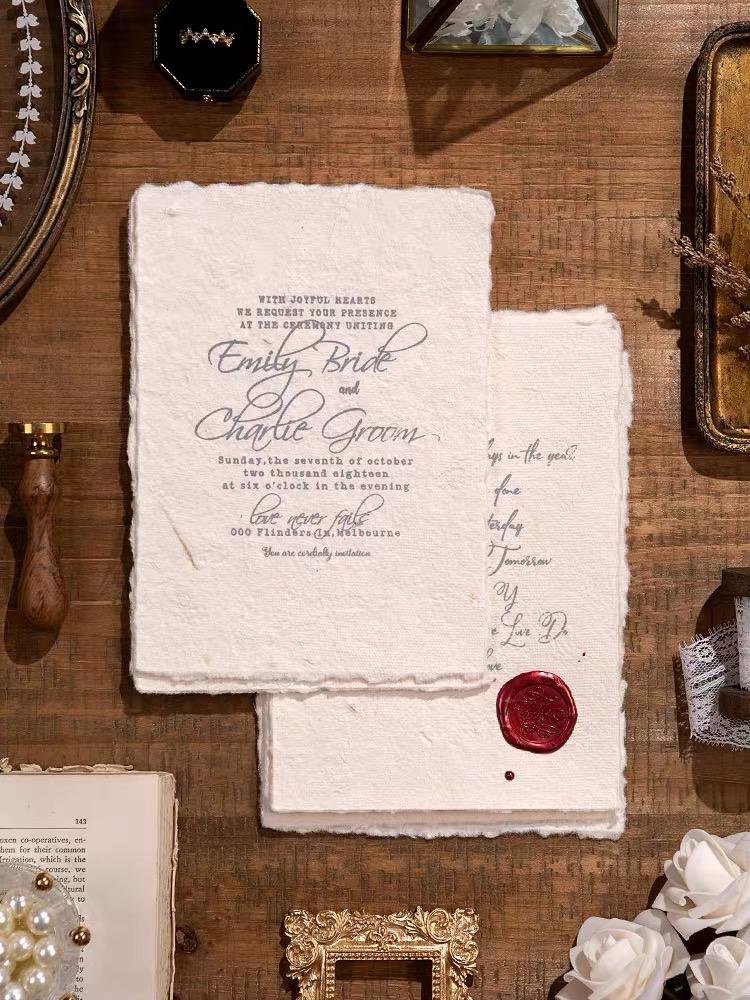 WITH JOYFUL HEARTS
WE REQUEST YOUR PRESENCE
AT THE CEREMONY UNITING
Emily Bride
and
Charlie Groom
Sunday,the seventh of october
two thousand eighteen
at six o'clock in the evening
love never fails
000 Flinders ln,Melbourne
You are cordially invitation
in the year?
done
Tomorrow
Y
Love Do
143
oxen co-operatives, en-
hem for their common
Irrigation, which is the
course, we
but
to
he